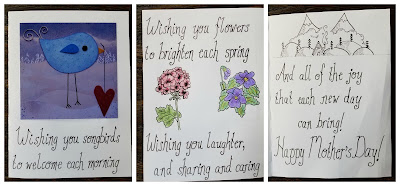 Wishing you songbirds
to welcome each morning
Wishing you flowers
to brighten each spring
Wishing you laughter,
and sharing and caring
And all of the joy
that each new day
can bring!
Happy Mother's Day!